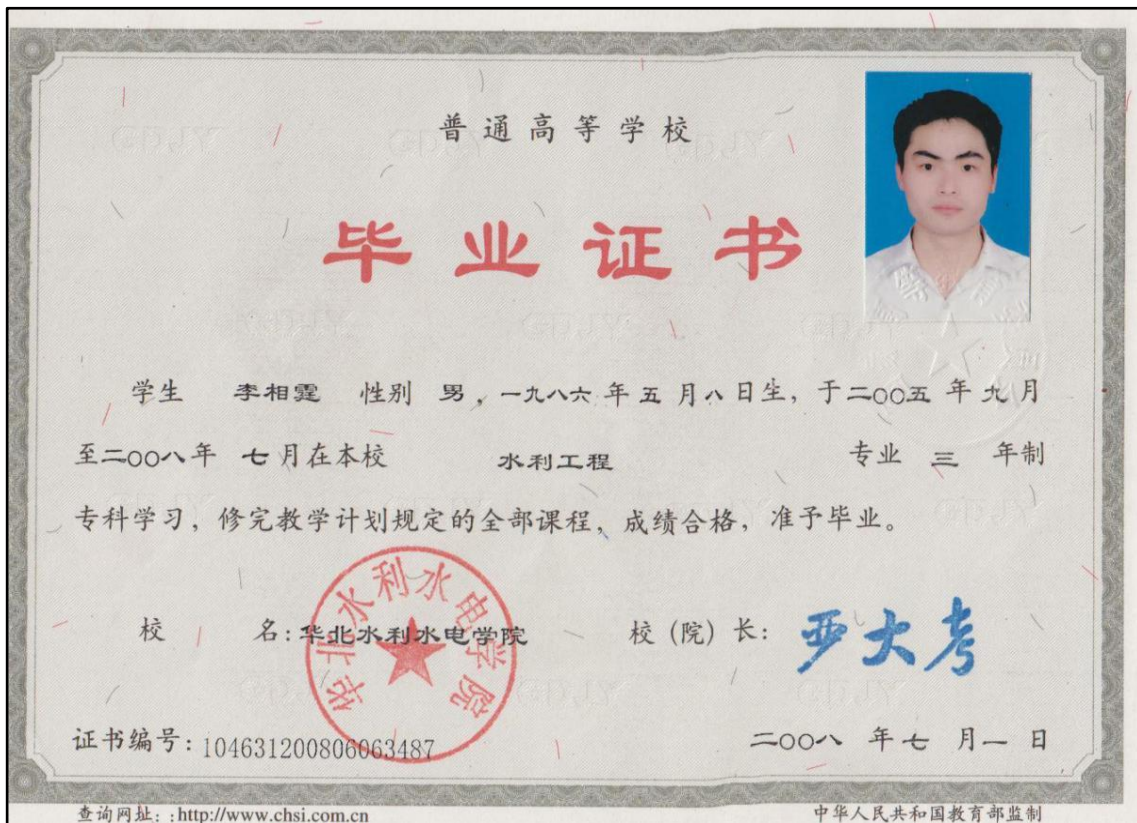 普通高等学校
毕业证书
学生 李相霆 性别 男，一九八六年五月八日生，于二〇〇五年九月
至二〇〇八年 七月在本校 水利工程 专业 三 年制
专科学习，修完教学计划规定的全部课程，成绩合格，准予毕业。
华北水利水电学院
校 名：华北水利水电学院 校（院）长：
证书编号：104631200806063487 二〇〇八 年七 月一 日
查询网址：:http://www.chsi.com.cn 中华人民共和国教育部监制